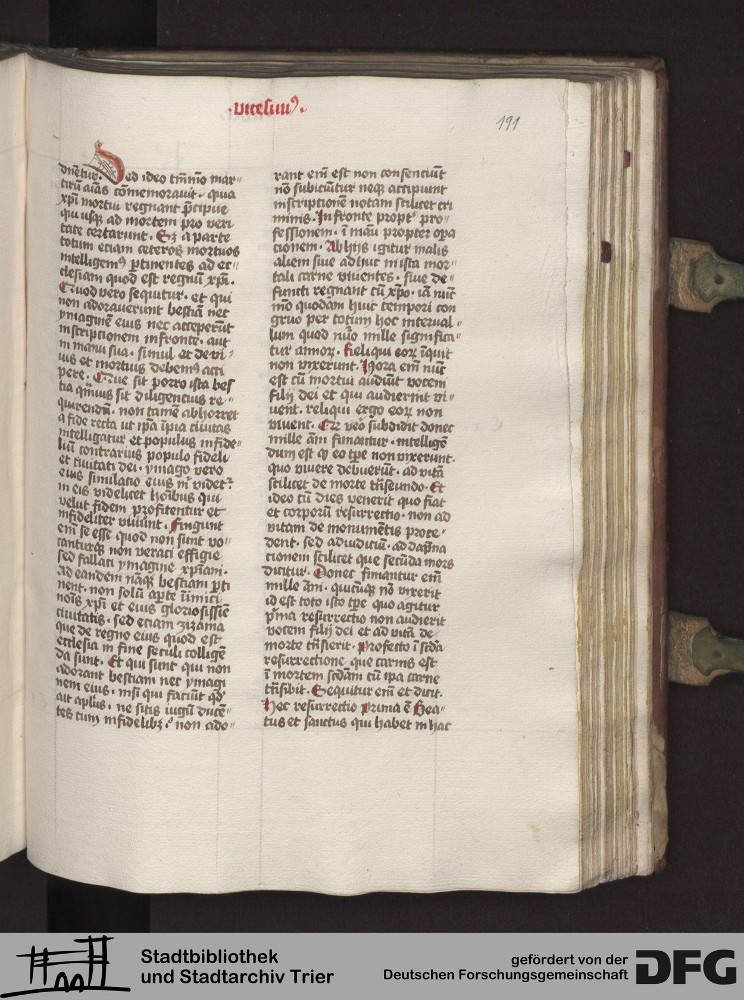 ·vicesim⁹·
191
dnēt᷑ur· Sed ideo tm̄mō mar-
tirū aīas cōmemorauit· quia
xpī mortui regnant p̄cipue
qui usq; ad mortem pro veri
tate certarunt· Sz a parte
totum etiam ceteros mortuos
intelligem⁹ ptinentes ad ec-
clesiam quod est regnū xpī·
Quod vero sequitur· et qui
non adorauerunt bestiā nec
ymaginē eius nec acceperūt
inscriptionem in fronte· aut
in manu sua· simul et de vi-
uis et mortuis debem⁹ acci
pere· Que sit porro ista bes
tia qͣmuis sit diligencius re-
quirendū· non tamē abhorret
a fide recta ut ipā īpia ciuitas
intelligatur et populus infide-
liū contrarius populo fideli
et ciuitati dei· ymago vero
eius simulatio eius m̄ videtᷣ
in eis videlicet hoībus qui
velut fidem profitentur et
infideliter viuūt· Fingunt
em̄ se esse quod non sunt vo-
canturq; non veraci effigie
sed fallaci ymagine xpīani·
Ad eandem nāq; bestiam pti
nent· non solū aperte īimici
noīs xpī et eius gloriosissiē
ciuitatis· sed etiam zizania
que de regno eius quod est
ecclesia in fine seculi colligē
da sunt· Et qui sunt qui non
adorant bestiam nec ymagi
nem eius· nisi qui faciūt qd̄
ait apl̄us· ne sitis iugū ducē-
tes cum infidelibz· non ado-
rant em̄ est non consenciūt
nō subiciūtur neq; accipiunt
inscriptionē notam scilicet cri
minis· In fronte propt᷑ pro-
fessionem· ī manu propter opa
cionem· Ab hijs igitur malis
alieni siue adhuc in ista mor-
tali carne viuentes· siue de-
functi regnant cū xpō· iā nūc
mō quodam huic tempori con
gruo per totum hoc interual-
lum quod nūo mille significa-
tur annor̄· Reliqui eor̄ īquit
non vixerunt· Hora em̄ nūc
est cū mortui audiūt vocem
filij dei et qui audierint vi-
uent· reliqui ergo eor̄ non
viuent· Qr̄ vēo subdidit donec
mille ām finiantur· intelligē
dum est q̄ eo tp̄e non vixerunt·
quo viuere debuerūt· ad vitā
scilicet de morte trāseundo· Et
ideo cū dies venerit quo fiat
et corporū resurrectio· non ad
vitam de monumētis proce-
dent· sed ad iudiciū· ad dāpna
cionem scilicet que secūda mors
dicitur· Donec finiantur em̄
mille āni· quicūq; nō vixerit
id est toto isto tp̄e quo agitur
p̄ma resurrectio non audierit
vocem filij dei et ad vitā de
morte trāsierit· profecto ī scd̄a
resurrectione que carnis est
ī mortem scd̄am cū ipa carne
trāsibit· Sequitur em̄ et dicit·
Hec resurrectio prima ē Bea-
tus et sanctus qui habet in hac
Stadtbibliothek
und Stadtarchiv Trier
gefördert von der
Deutschen Forschungsgemeinschaft
DFG